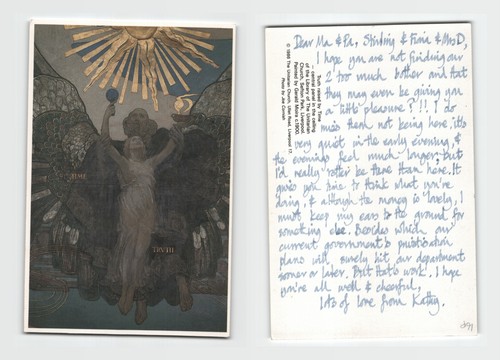 TIME
TRUTH
Truth raised by Time
central panel in the ceiling
of the Library at The Unitarian
Church, Sefton Park, Liverpool.
Painted by Gerald Moira c.1900.
Photo by Joe Corman
© 1988 The Unitarian Church, Ullet Road, Liverpool 17.
Dear Ma & Pa, Stinking & Fiona & Mrs D,
I hope you are not finding our
2 too much bother and that
they may even be giving you
a 'little pleasure'?!!! I do
miss them not being here, it's
very quiet in the early evening, &
the evenings feel much longer, but
I'd really rather be there than here. It
gives you time to think what you're
doing, & although the money is lovely, I
must keep my ears to the ground for
something else. Besides which our
current government's privatisation
plans will surely hit our department
sooner or later. But that's work, I hope
you're all well & cheerful,
Lots of love from Kathy.